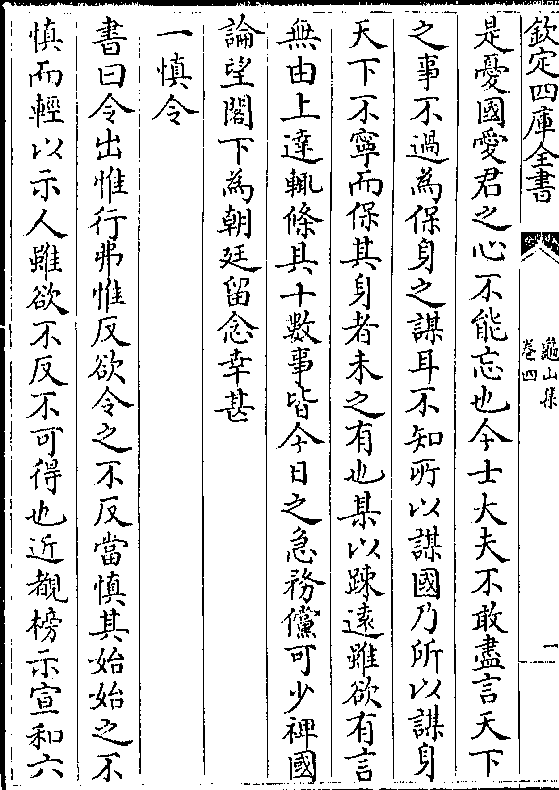 欽定四庫全書
龜山集
卷四
一
是憂國愛君之心不能忘也今士大夫不敢盡言天下
之事不過為保身之謀耳不知所以謀國乃所以謀身
天下不寧而保其身者未之有也某以踈逺雖欲有言
無由上達輒條具十數事皆今日之急務儻可少裨國
論望閣下為朝廷留念幸甚
一慎令
書曰令出惟行弗惟反欲令之不反當慎其始始之不
慎而輕以示人雖欲不反不可得也近覩榜示宣和六